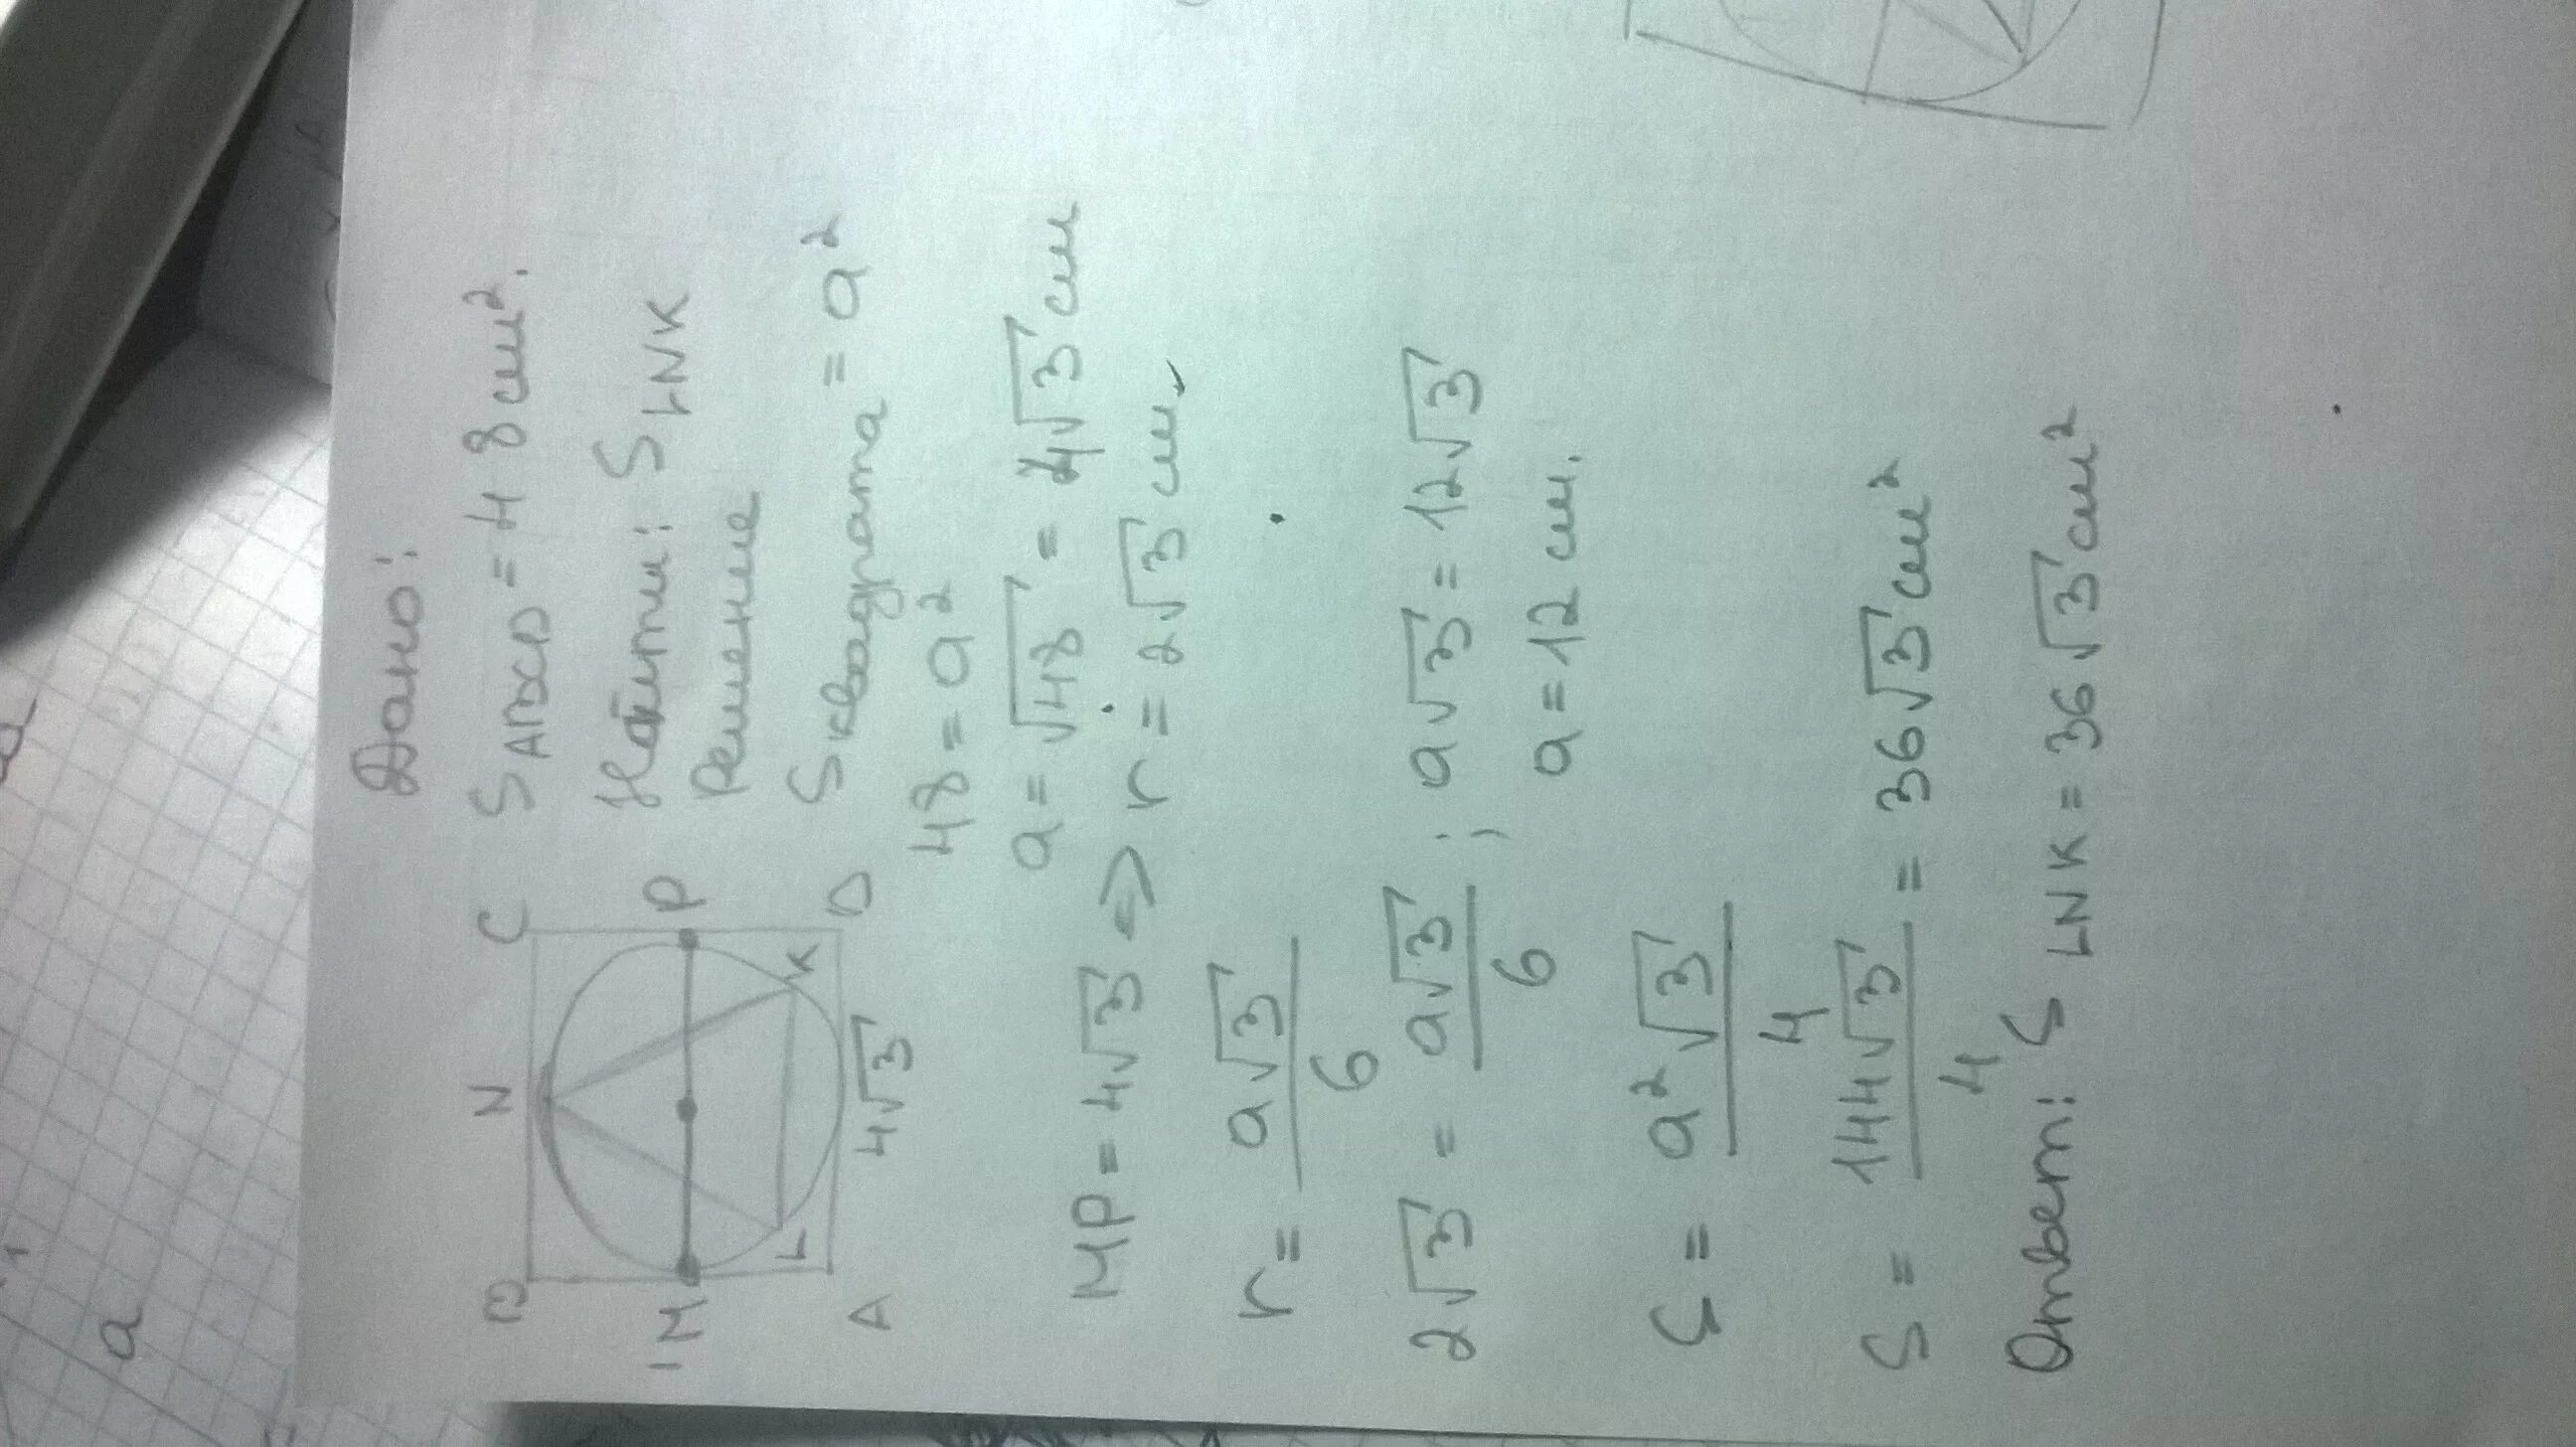 Дано:
B N C
S ABCD = 48 см².
Найти: S LNK
M P
Решение
L K
S квадрата = a²
A D
4√3
48 = a²
a = √48 = 4√3 см
MP = 4√3 => r = 2√3 см
r = a√3 / 6
2√3 = a√3 / 6 ; a√3 = 12√3
a = 12 см.
S = a²√3 / 4
S = 144√3 / 4 = 36√3 см²
Ответ: S LNK = 36√3 см²
a